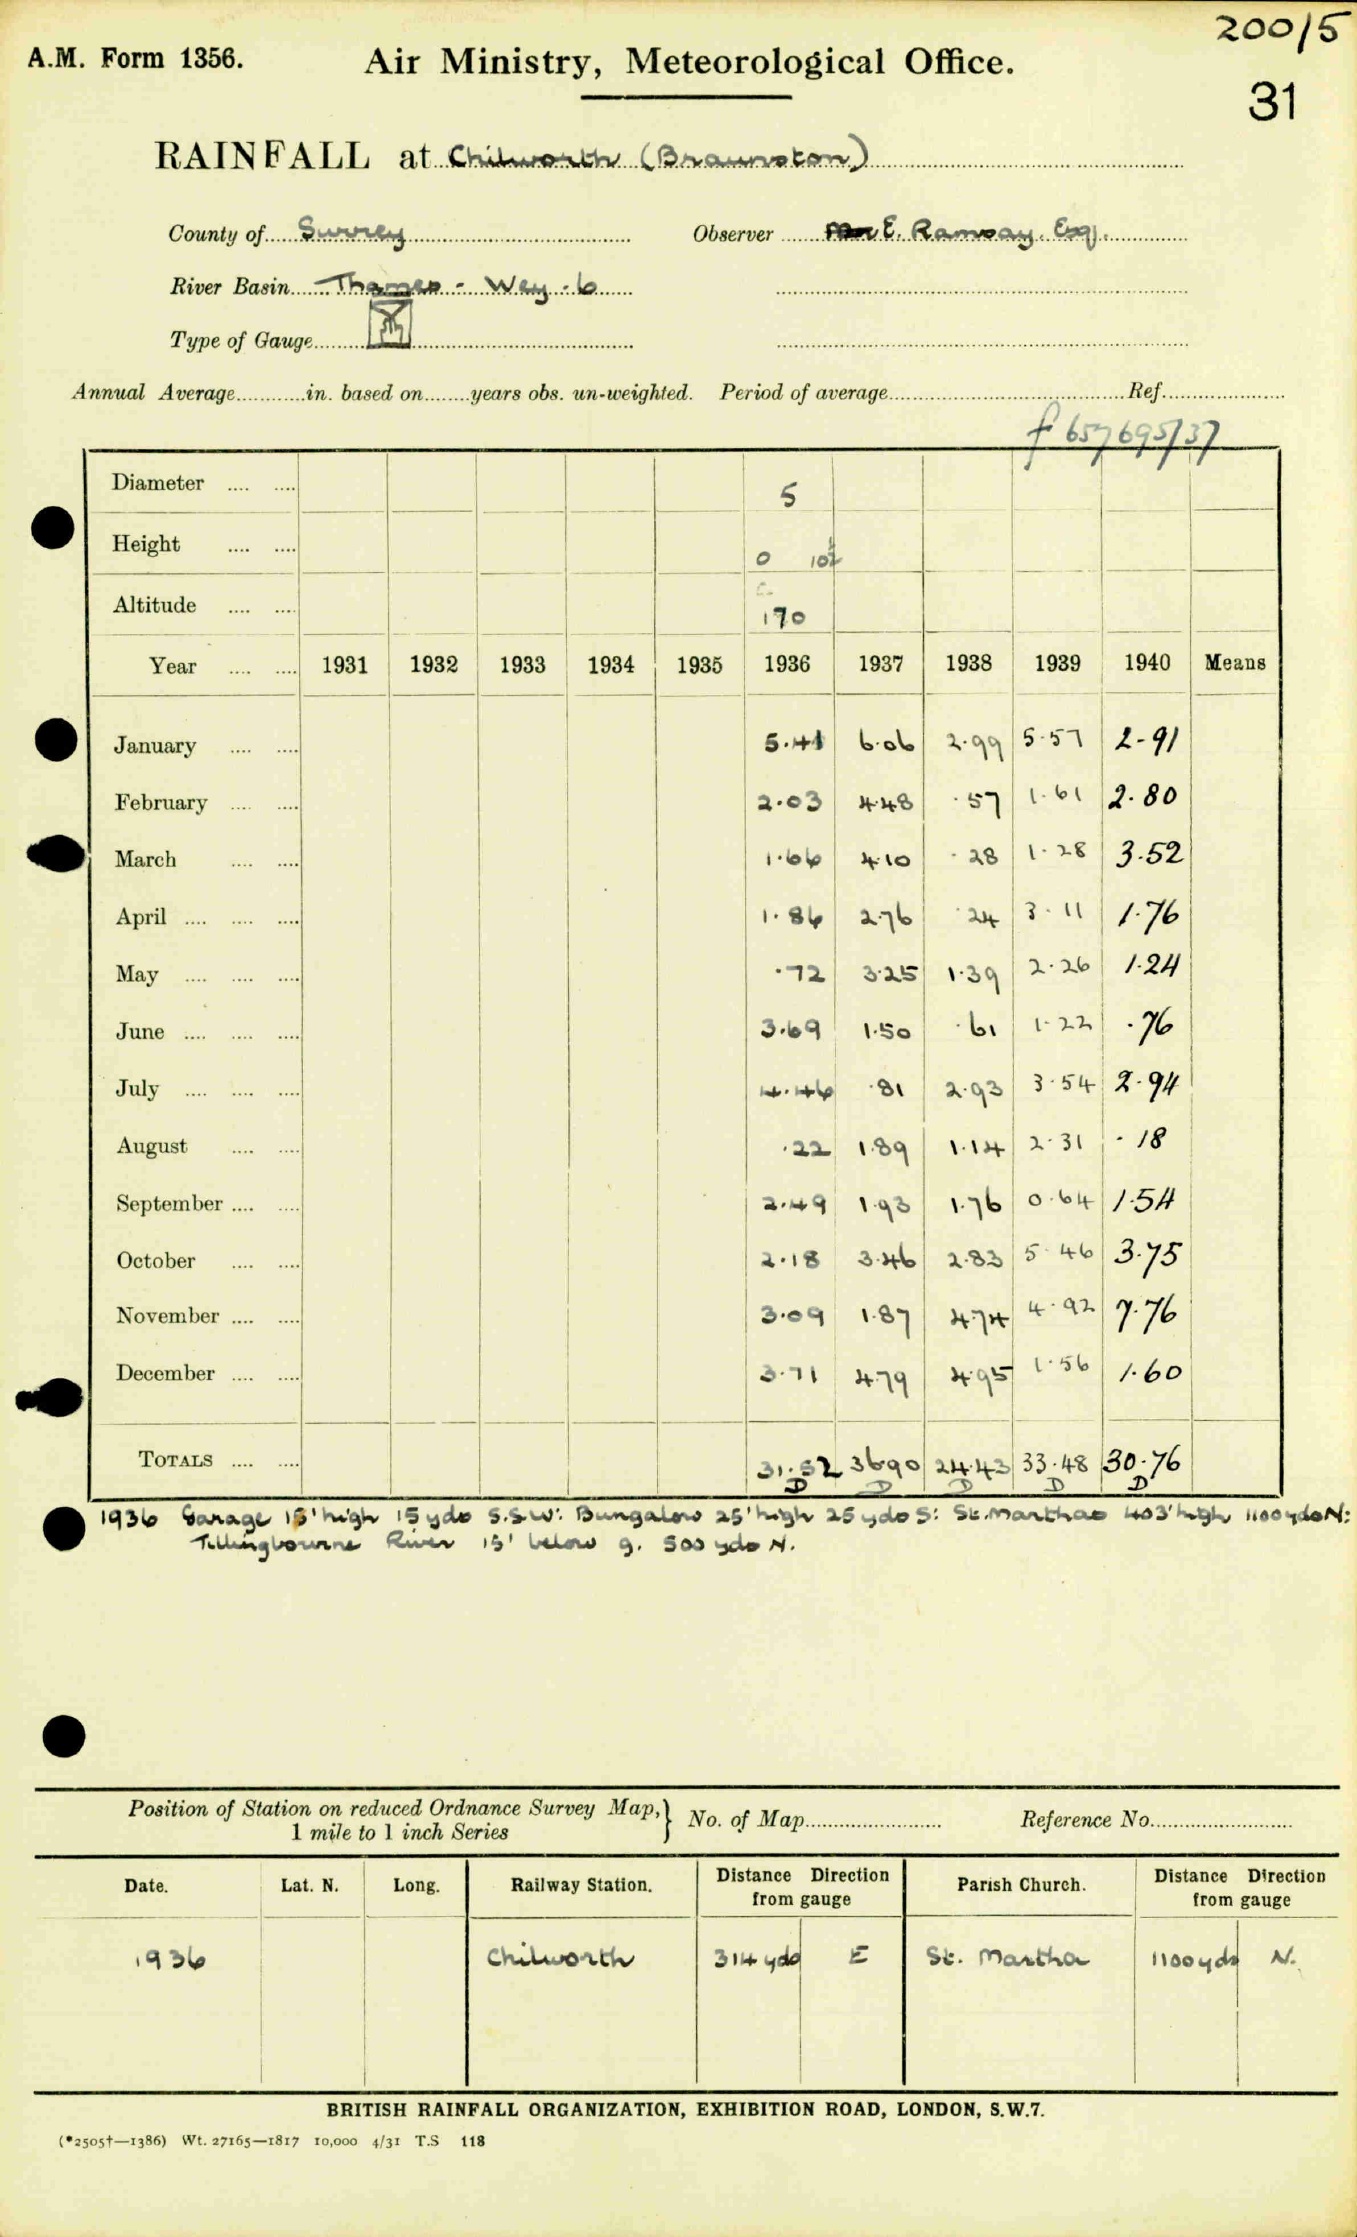 200/5
A.M. Form 1356. Air Ministry, Meteorological Office.
31
RAINFALL at Chilworth (Braunston)
County of Surrey Observer E. Ramsay. Esq.
River Basin Thames - Wey - 6
Type of Gauge
Annual Average in. based on years obs. un-weighted. Period of average Ref.
f 657695/37
Diameter 5
Height 0 10½
Altitude 170
Year 1931 1932 1933 1934 1935 1936 1937 1938 1939 1940 Means
January 5.41 6.06 2.99 5.57 2.91
February 2.03 4.48 .57 1.61 2.80
March 1.66 4.10 .28 1.28 3.52
April 1.86 2.76 .24 3.11 1.76
May .72 3.25 1.39 2.26 1.24
June 3.69 1.50 .61 1.22 .76
July 4.46 .81 2.93 3.54 2.94
August .22 1.89 1.14 2.31 .18
September 2.49 1.93 1.76 0.64 1.54
October 2.18 3.46 2.83 5.46 3.75
November 3.09 1.87 4.74 4.92 7.76
December 3.71 4.79 4.95 1.56 1.60
TOTALS 31.52 36.90 24.43 33.48 30.76
D D D D D
1936 Garage 15' high 15 yds S.S.W: Bungalow 25' high 25 yds S: St. Marthas 403' high 1100 yds N:
Tillingbourne River 15' below g. 500 yds N.
Position of Station on reduced Ordnance Survey Map,} No. of Map Reference No.
1 mile to 1 inch Series
Date. Lat. N. Long. Railway Station. Distance Direction from gauge Parish Church. Distance Direction from gauge
1936 Chilworth 314 yds E St. Martha 1100 yds N.
BRITISH RAINFALL ORGANIZATION, EXHIBITION ROAD, LONDON, S.W.7.
(*2505†—1386) Wt. 27165—1817 10,000 4/31 T.S 118